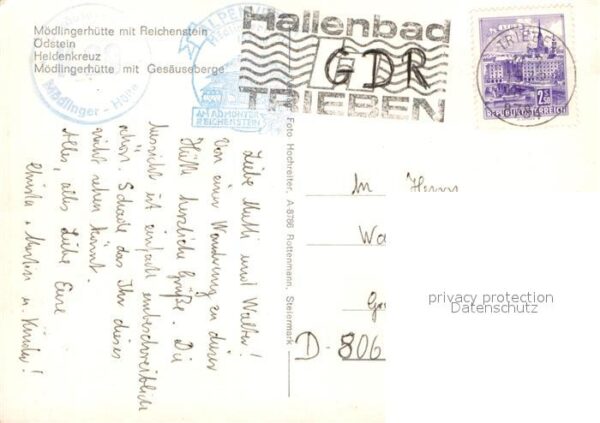 Mödlingerhütte mit Reichenstein
Ödstein
Heldenkreuz
Mödlingerhütte mit Gesäuseberge
Mödlinger - Hütte
AM ADMONTER
REICHENSTEIN
Hallenbad
GDR
TRIEBEN
TRIEBEN
REPUBLIK ÖSTERREICH
Liebe Mutti und Walter!
Von einer Wanderung zu dieser
Hütte herzliche Grüße. Die
Aussicht ist einfach unbeschreiblich
schön. Schade das Ihr dieses
nicht sehen könnt.
Alles, alles Liebe Eure
Christa, Martin u. Kinder!
Foto Hochreiter, A-8786 Rottenmann, Steiermark
An Herrn
Wa
D-806
privacy protection
Datenschutz